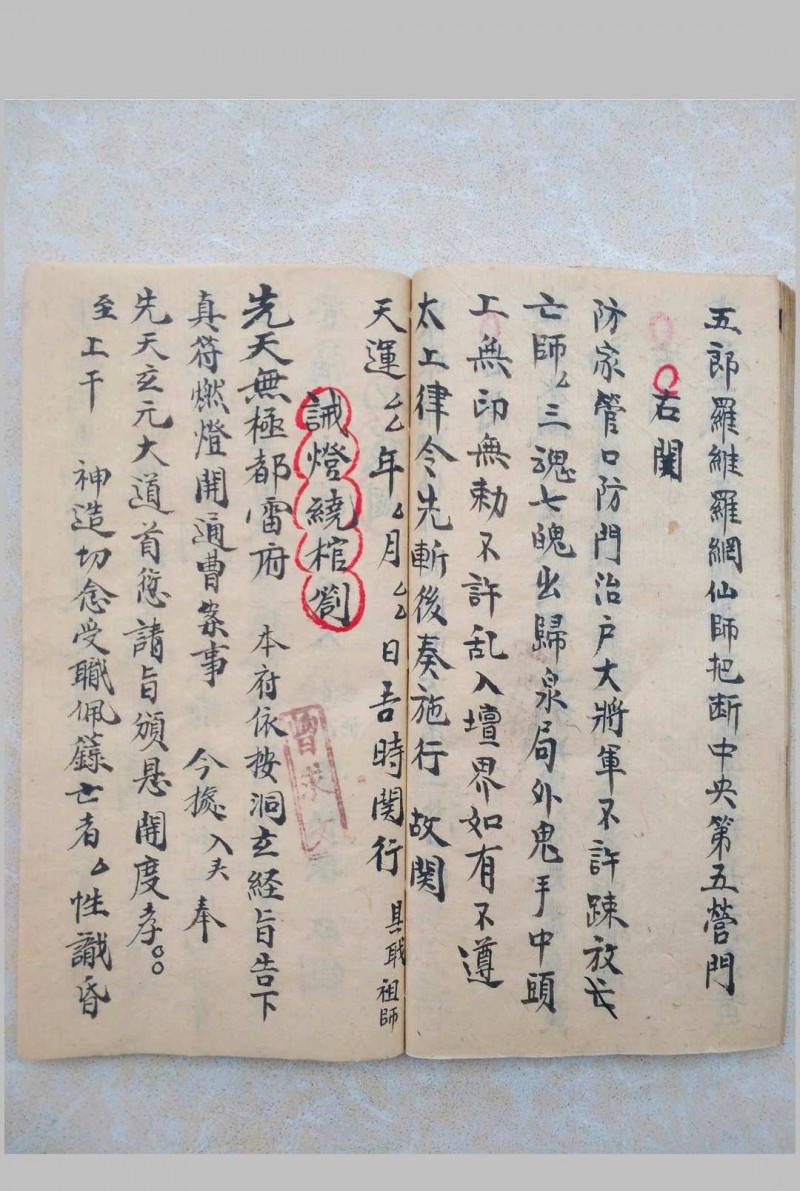 五郎羅維羅網仙師把断中央第五營門
右関
防家管口防門治户大將軍不許踈放
亡師厶三魂七魄出歸泉局外鬼手中頭
上無印無勅不許乱入壇界如有不遵
太上律令先斬後奏施行 故関
天運厶年厶月厶日吾時関行 具職 祖師
誡燈繞棺劄
先天無極都雷府 本府依按洞玄經旨告下
真符燃燈開通曹案事 今據入夫奉
先天玄元大道首愆請旨頒恩開度孝
至上干 神造切念受職佩籙亡者厶性識昏